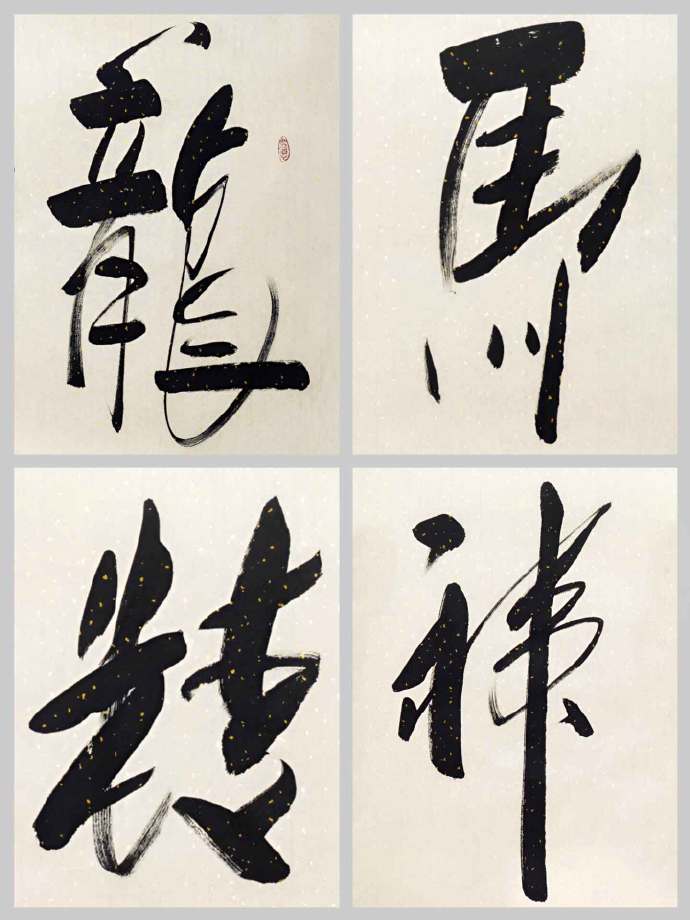 龍
馬
精
神